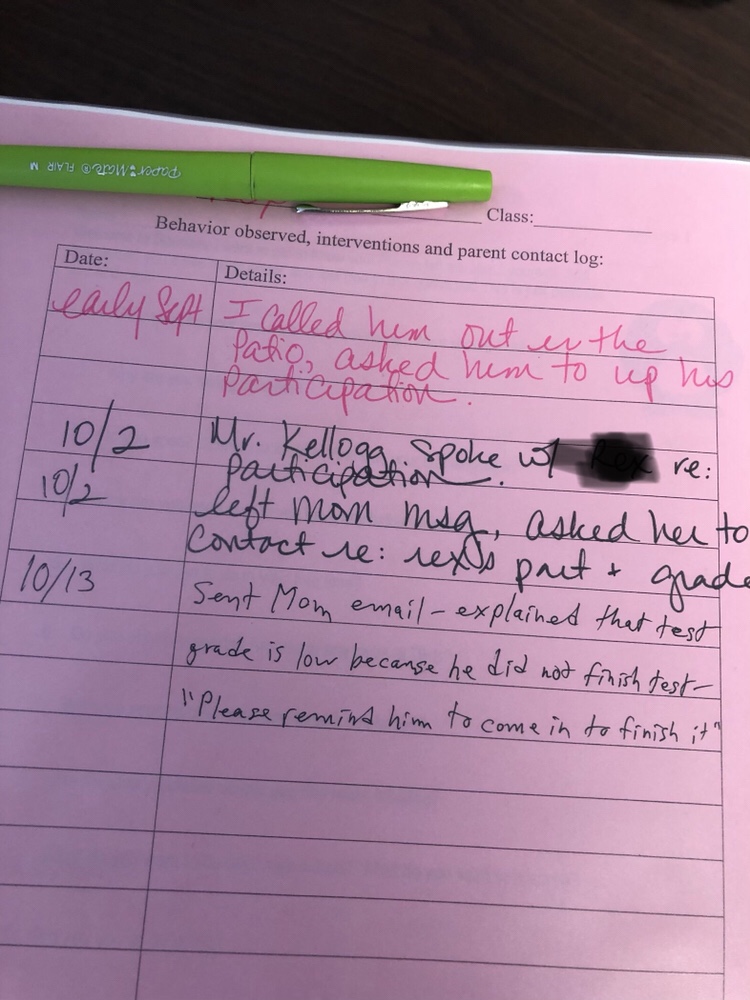 Paper Mate® FLAIR M
Class:
Behavior observed, interventions and parent contact log:
Date: Details:
early Sept I called him out in the
patio, asked him to up his
participation.
10/2 Mr. Kellogg spoke w/ re:
participation.
10/2 left mom msg, asked her to
contact re: rex's part + grade
10/13 Sent Mom email - explained that test
grade is low because he did not finish test-
"Please remind him to come in to finish it"